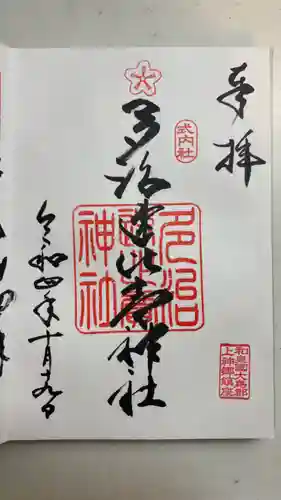 奉拝
式内社
多治速比売神社
多治
速比賣
神社
和泉國大鳥郡
上神郷鎮座
令和四年十月九日